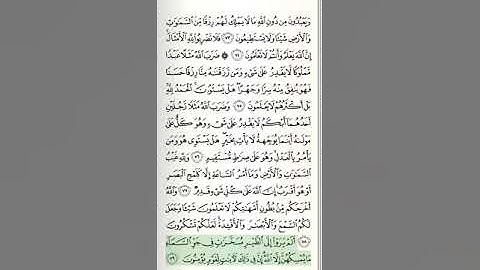 وَيَعْبُدُونَ مِن دُونِ اللَّهِ مَا لَا يَمْلِكُ لَهُمْ رِزْقًا مِّنَ السَّمَٰوَٰتِ
وَالْأَرْضِ شَيْـًٔا وَلَا يَسْتَطِيعُونَ ٧٣ فَلَا تَضْرِبُوا۟ لِلَّهِ الْأَمْثَالَ
إِنَّ اللَّهَ يَعْلَمُ وَأَنتُمْ لَا تَعْلَمُونَ ٧٤ ۞ ضَرَبَ اللَّهُ مَثَلًا عَبْدًا
مَّمْلُوكًا لَّا يَقْدِرُ عَلَىٰ شَىْءٍ وَمَن رَّزَقْنَٰهُ مِنَّا رِزْقًا حَسَنًا
فَهُوَ يُنفِقُ مِنْهُ سِرًّا وَجَهْرًا هَلْ يَسْتَوُۥنَ الْحَمْدُ لِلَّهِ
بَلْ أَكْثَرُهُمْ لَا يَعْلَمُونَ ٧٥ وَضَرَبَ اللَّهُ مَثَلًا رَّجُلَيْنِ
أَحَدُهُمَآ أَبْكَمُ لَا يَقْدِرُ عَلَىٰ شَىْءٍ وَهُوَ كَلٌّ عَلَىٰ
مَوْلَىٰهُ أَيْنَمَا يُوَجِّههُّ لَا يَأْتِ بِخَيْرٍ هَلْ يَسْتَوِى هُوَ وَمَن
يَأْمُرُ بِالْعَدْلِ وَهُوَ عَلَىٰ صِرَٰطٍ مُّسْتَقِيمٍ ٧٦ وَلِلَّهِ غَيْبُ
السَّمَٰوَٰتِ وَالْأَرْضِ وَمَآ أَمْرُ السَّاعَةِ إِلَّا كَلَمْحِ الْبَصَرِ
أَوْ هُوَ أَقْرَبُ إِنَّ اللَّهَ عَلَىٰ كُلِّ شَىْءٍ قَدِيرٌ ٧٧ وَاللَّهُ
أَخْرَجَكُم مِّنۢ بُطُونِ أُمَّهَٰتِكُمْ لَا تَعْلَمُونَ شَيْـًٔا وَجَعَلَ
لَكُمُ السَّمْعَ وَالْأَبْصَٰرَ وَالْأَفْـِٔدَةَ لَعَلَّكُمْ تَشْكُرُونَ
٧٨ أَلَمْ يَرَوْا۟ إِلَى الطَّيْرِ مُسَخَّرَٰتٍ فِى جَوِّ السَّمَآءِ
مَا يُمْسِكُهُنَّ إِلَّا اللَّهُ إِنَّ فِى ذَٰلِكَ لَـَٔايَٰتٍ لِّقَوْمٍ يُؤْمِنُونَ ٧٩